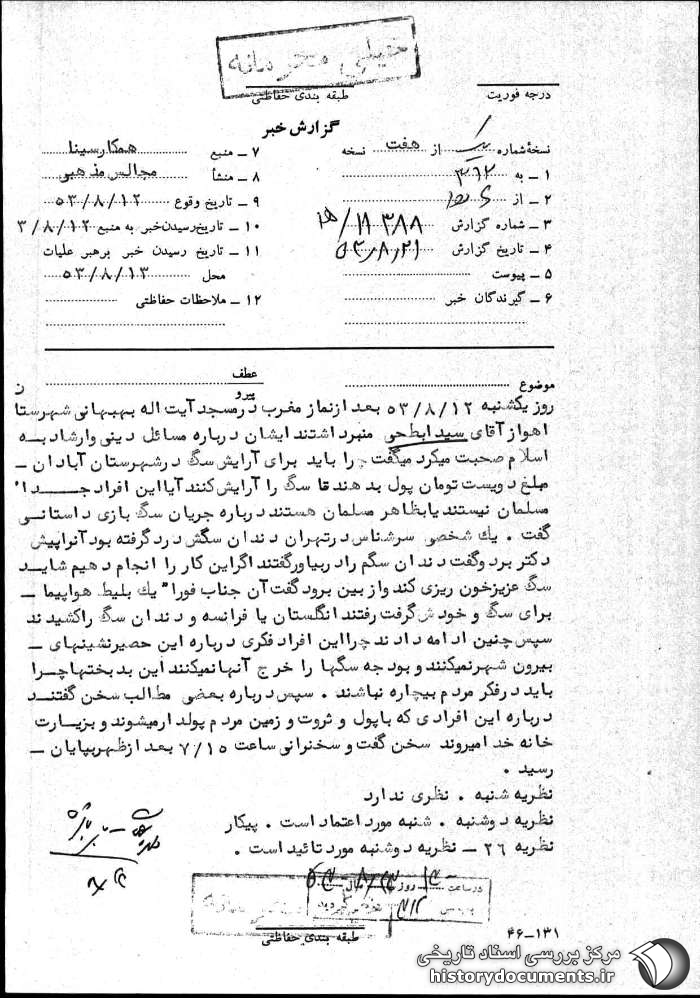 خیلی محرمانه
طبقه بندی حفاظتی
درجه فوریت
گزارش خبر
نسخهٔ شماره یک از هفت نسخه
۱ – به ۳۶۲
۲ – از
۳ – شماره گزارش ۱۱۳۸۸/
۴ – تاریخ گزارش ۵۳٫۸٫۲۱
۵ – پیوست
۶ – گیرندگان خبر
۷ – منبع همکار سینا
۸ – منشأ مجالس مذهبی
۹ – تاریخ وقوع ۵۳/۸/۱۲
۱۰ – تاریخ رسیدن خبر به منبع ۳/۸/۱۲
۱۱ – تاریخ رسیدن خبر برهبر علیات
محل ۵۳/۸/۱۳
۱۲ – ملاحظات حفاظتی
موضوع
عطف
پیرو
روز یکشنبه ۵۳/۸/۱۲ بعد از نماز مغرب در مسجد آیت اله بهبهانی شهرستان
اهواز آقای سید ابطحی منبر داشتند ایشان درباره مسائل دینی و ارشاد به
اسلام صحبت میکرد میگفت چرا باید برای آرایش سگ در شهرستان آبادان –
مبلغ دویست تومان پول بدهند تا سگ را آرایش کنند آیا این افراد جدا"
مسلمان نیستند یا بظاهر مسلمان هستند درباره جریان سگ بازی داستانی
گفت . یك شخصی سرشناس در تهران دندان سگش درد گرفته بود آنرا پیش
دکتر برد و گفت دندان سگم را دربیاور گفتند اگر این کار را انجام دهیم شاید
سگ عزیز خون ریزی کند و از بین برود گفت آن جناب فورا" یك بلیط هواپیما –
برای سگ و خودش گرفت رفتند انگلستان یا فرانسه و دندان سگ را کشیدند
سپس چنین ادامه دادند چرا این افراد فکری درباره این حصیر نشینهای –
بیرون شهر نمیکنند و بودجه سگها را خرج آنها نمیکنند این بدبختها چرا
باید در فکر مردم بیچاره نباشند . سپس درباره بعضی مطالب سخن گفتند
درباره این افرادی که با پول و ثروت و زمین مردم پولدار میشوند و بزیارت
خانه خدا میروند سخن گفت و سخنرانی ساعت ۷/۱۵ بعد از ظهر بپایان –
رسید .
نظریه شنبه . نظری ندارد
نظریه دوشنبه . شنبه مورد اعتماد است . پیکار
نظریه ۲۶ – نظریه دوشنبه مورد تائید است .
در ساعت روز سال
طبقه بندی حفاظتی
۴۶–۱۳۱
مرکز بررسی اسناد تاریخی
historydocuments.ir